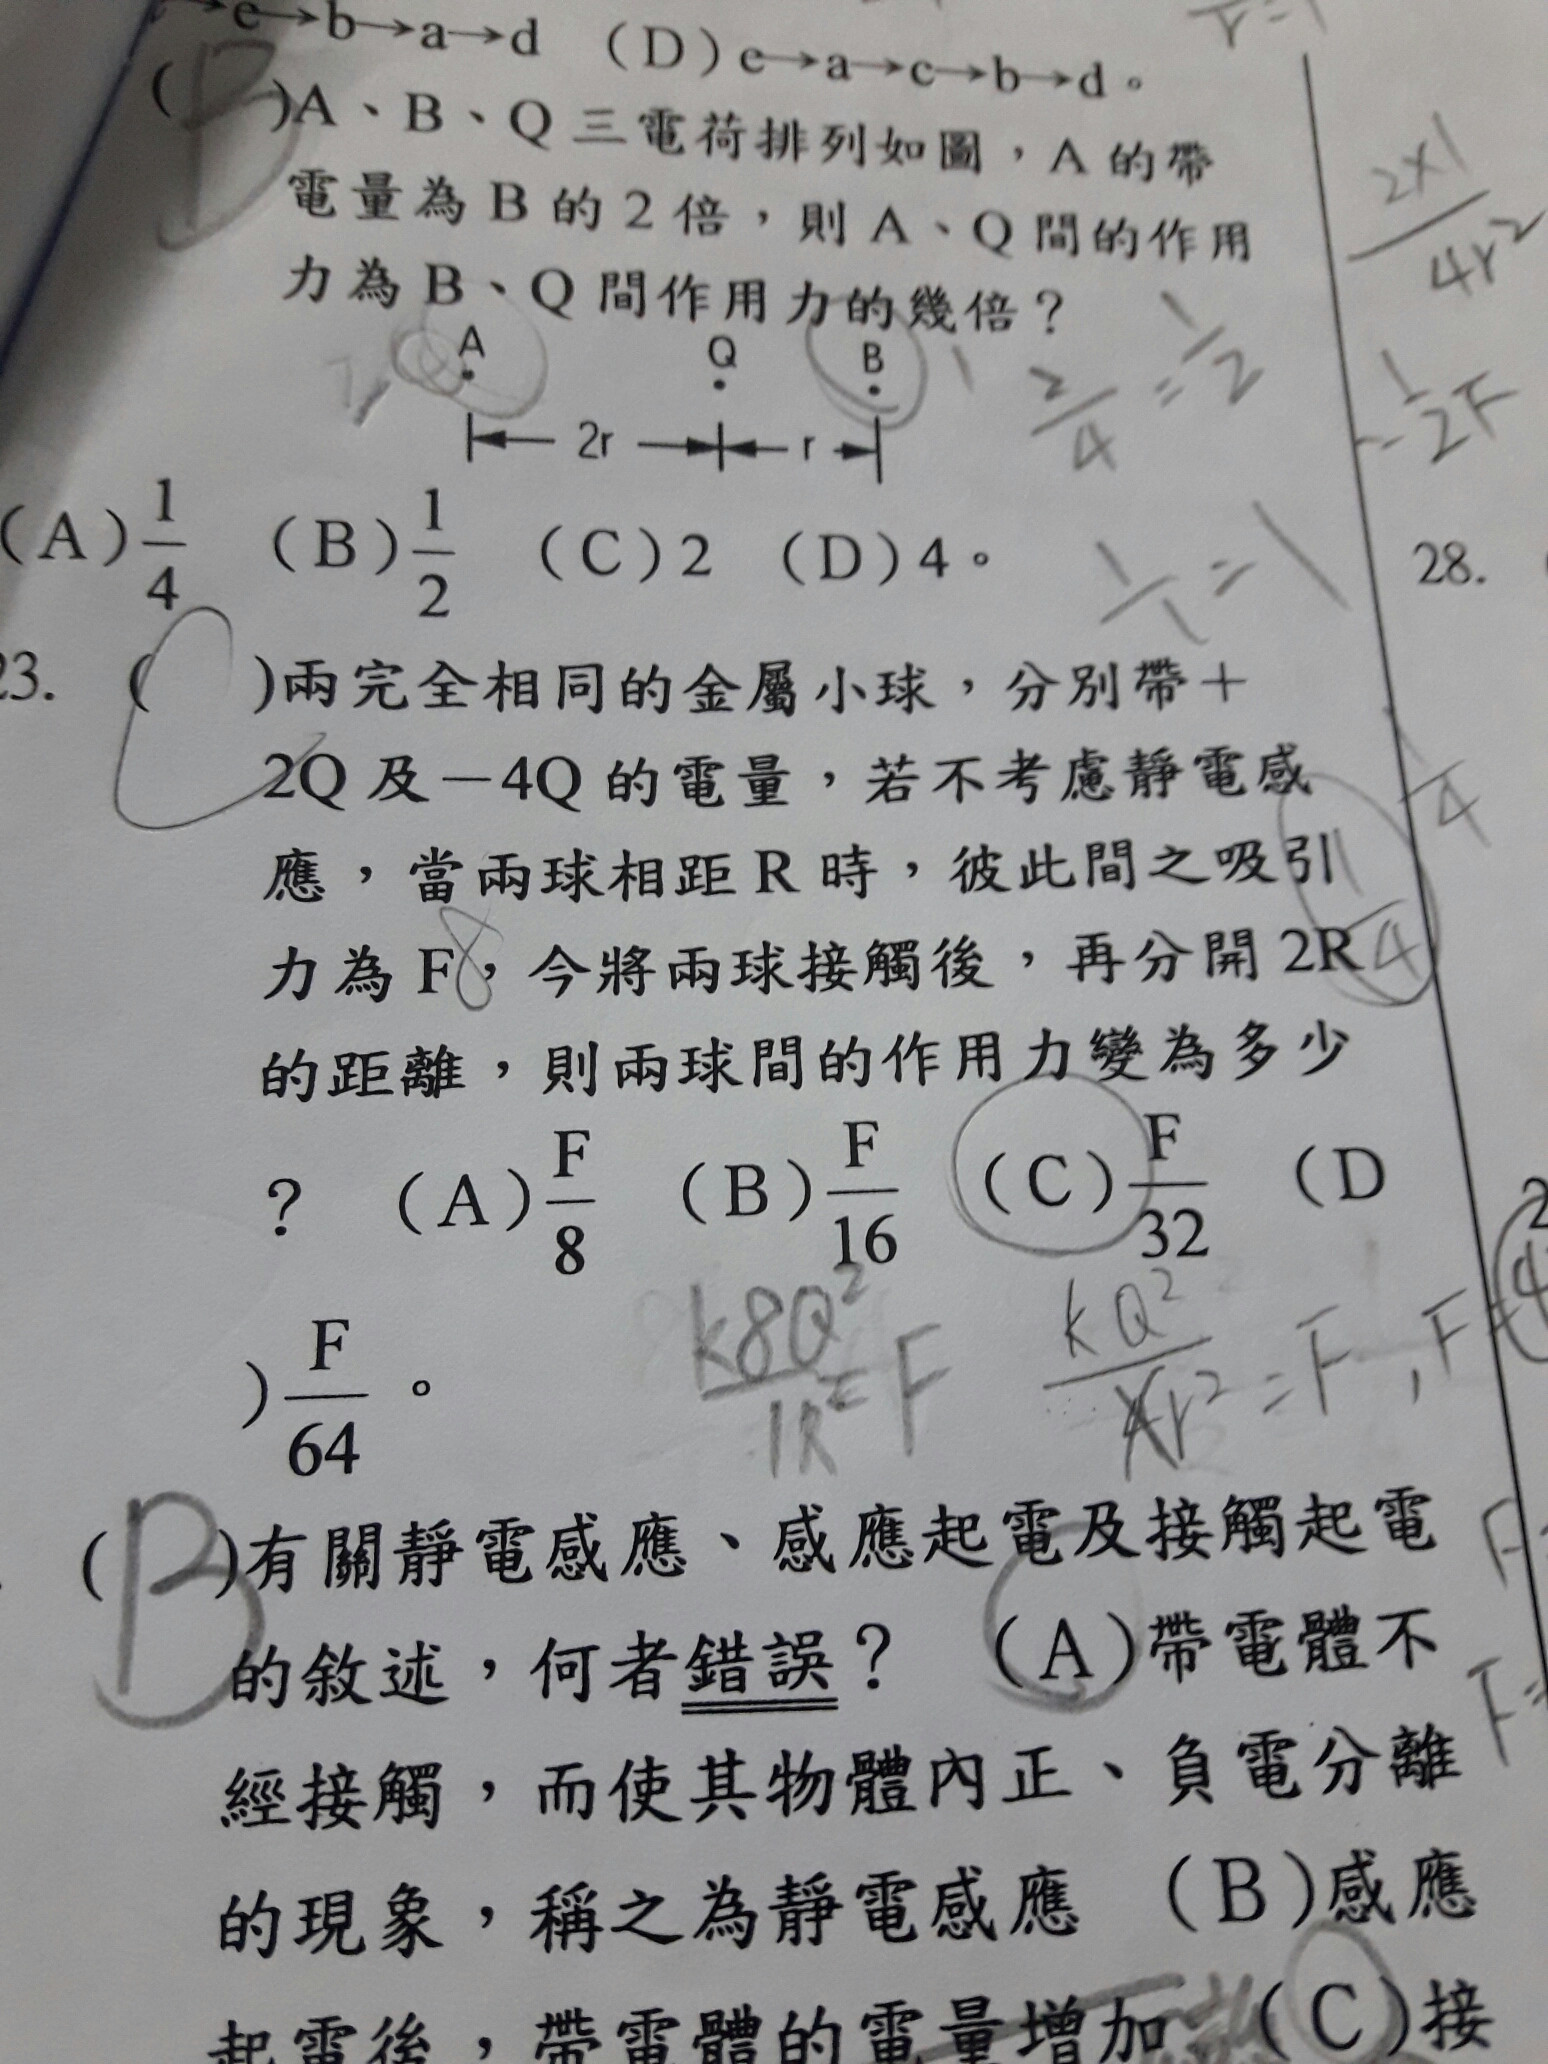 e→b→a→d (D)e→a→c→b→d。
(B)A、B、Q三電荷排列如圖，A的帶
電量為B的2倍，則A、Q間的作用
力為B、Q間作用力的幾倍？
A Q B
2 1
2r r
2/4 = 1/2
(A)1/4 (B)1/2 (C)2 (D)4。
1/1 = 1
23. ( )兩完全相同的金屬小球，分別帶＋
2Q及－4Q的電量，若不考慮靜電感
應，當兩球相距R時，彼此間之吸引
力為F，今將兩球接觸後，再分開2R
8
的距離，則兩球間的作用力變為多少
？ (A)F/8 (B)F/16 (C)F/32 (D
)F/64。
k8Q²/1R² = F
kQ²/4r² = F
(B)有關靜電感應、感應起電及接觸起電
的敘述，何者錯誤？ (A)帶電體不
經接觸，而使其物體內正、負電分離
的現象，稱之為靜電感應 (B)感應
起電後，帶電體的電量增加 (C)接
r=1
2×1/4r²
1/2F
28.
1/4
1/4